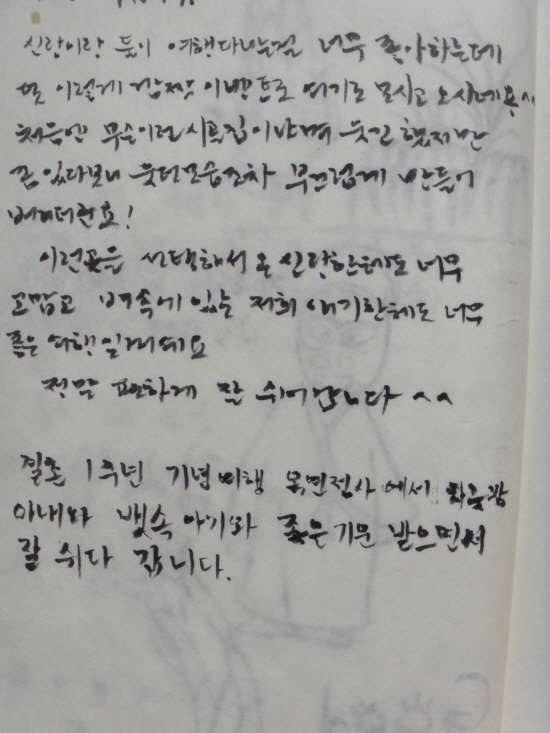 신랑이랑 둘이 여행다니는걸 너무 좋아하는데
또 이렇게 깜짝 이벤트로 여기로 모시고 오시네용
처음엔 무슨이런시골집이냐며 웃긴 했지만
좀 있다보니 웃던모습조차 부끄럽게 만들어
버리더란요!
이런곳을 선택해서 온 신랑한테도 너무
고맙고 배속에 있는 저희 애기한테도 너무
좋은 여행일거예요
정말 편하게 잘 쉬어갑니다 ^^
결혼 1주년 기념여행 에서
아내와 뱃속 아기와 좋은기운 받으면서
잘 쉬다 갑니다.